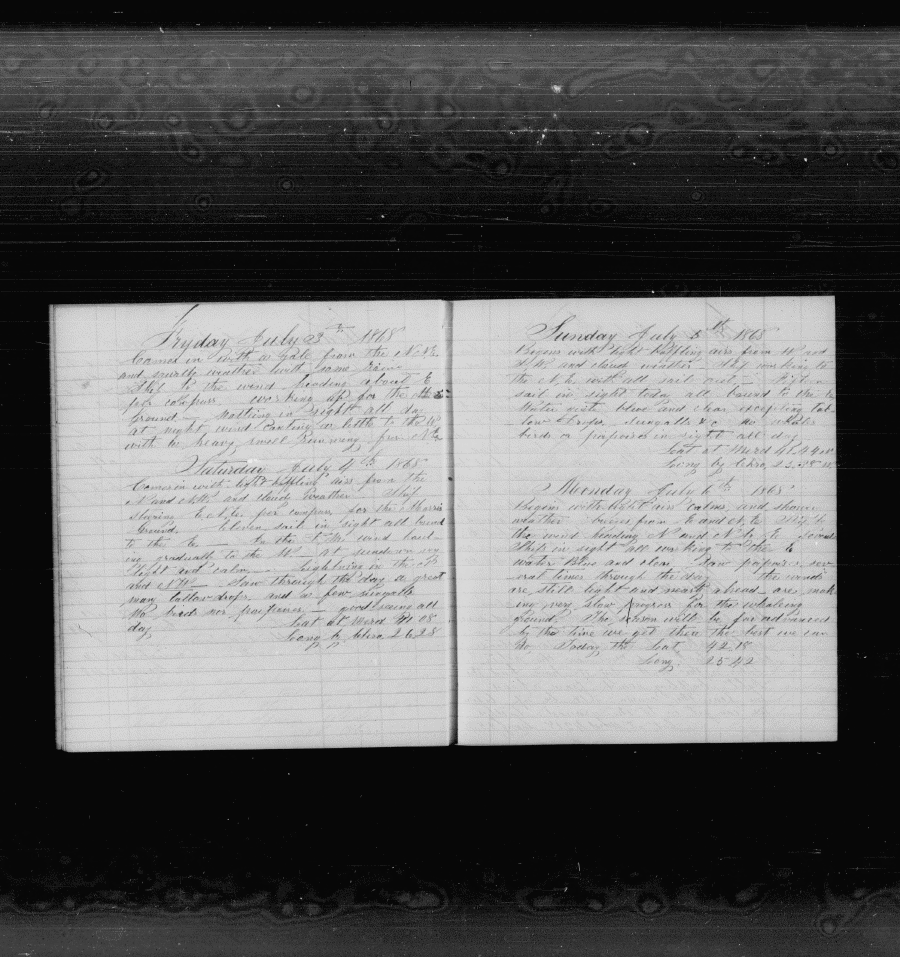 Fryday July 3th 1868
Comes in with a gale from the N.N.E.
and squally weather with some rain
Ship to the wind heading about E
per compass working up for the
Ground. Nothing in sight all day
at night wind canting a little to the
with a heavy swell running from N.E.
Saturday July 4th 1868
Comes in with light baffling airs from the
N and N.W. and cloudy weather Ship
stearing E.N.E. per compass for the
Ground. Eleven sail in sight all bound
to the E. to the wind haul-
ing gradually to the W at sundown very
light and calm Lightning in the N
and N.W. Saw through the day a great
many tallow drops and a few sungalls
No birds nor porpoises good seeing all
day Lat at Merd 41.08
Long by Chro 26.28
Sunday July 5th 1868
Begins with light baffling airs from W and
S.W. and cloud weather Ship working to
the N.E. with all sail out Fifteen
sail in sight today all bound to the
Water quite blue and clear excepting tal-
low drops, sungalls &c no whales
birds or porpoises in sight all day
Lat at Merd 41.44
Long by Chro, 25.58
Monday July 6th 1868
Begins with light airs calms and shower
weather breezes from E and N.E. Ship to
the wind heading N and N by E
Ships in sight all working to the E
water Blue and clear. Saw porpoises sev-
eral times through the day the winds
are still light and nearly ahead are mak-
ing very slow progress for the whaling
ground. The season will be far advanced
by the time we get there the best we can
do, Today the Lat 42.18
Long 25.42